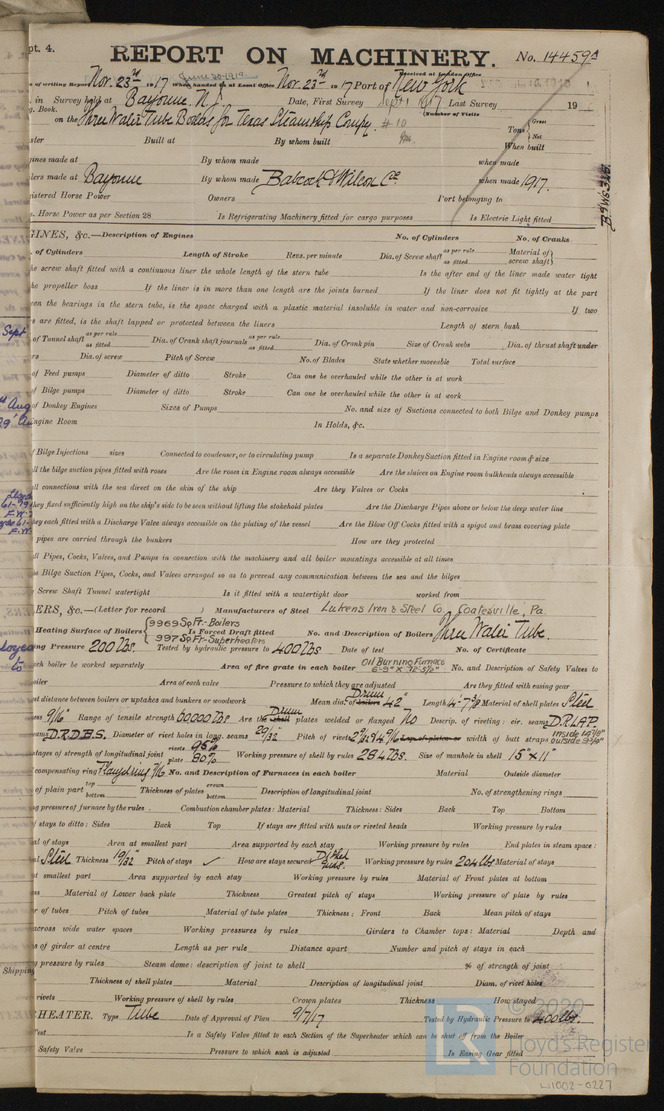 pt. 4.
REPORT ON MACHINERY. No. 14459A
Received at London Office
of writing Report Nov. 23rd 1917 When handed in at Local Office Nov. 23rd 1917 Port of New York
in Survey held at Bayonne N.J. Date, First Survey Sept 1 1917 Last Survey 19
Book. (Number of Visits
on the Three Water Tube Boilers for Texas Steamship Compy. # 10
Tons { Gross Net
ster Built at By whom built When built
gines made at By whom made when made
ilers made at Bayonne By whom made Babcock & Wilcox Co. when made 1917.
gistered Horse Power Owners Port belonging to
. Horse Power as per Section 28 Is Refrigerating Machinery fitted for cargo purposes Is Electric Light fitted
GINES, &c.—Description of Engines No. of Cylinders No. of Cranks
. of Cylinders Length of Stroke Revs. per minute Dia. of Screw shaft as per rule as fitted Material of screw shaft
he screw shaft fitted with a continuous liner the whole length of the stern tube Is the after end of the liner made water tight
he propeller boss If the liner is in more than one length are the joints burned If the liner does not fit tightly at the part
een the bearings in the stern tube, is the space charged with a plastic material insoluble in water and non-corrosive If two
s are fitted, is the shaft lapped or protected between the liners Length of stern bush
of Tunnel shaft as per rule as fitted Dia. of Crank shaft journals as per rule as fitted Dia. of Crank pin Size of Crank webs Dia. of thrust shaft under
rs Dia. of screw Pitch of Screw No. of Blades State whether moveable Total surface
of Feed pumps Diameter of ditto Stroke Can one be overhauled while the other is at work
of Bilge pumps Diameter of ditto Stroke Can one be overhauled while the other is at work
of Donkey Engines Sizes of Pumps No. and size of Suctions connected to both Bilge and Donkey pumps
Engine Room In Holds, &c.
f Bilge Injections sizes Connected to condenser, or to circulating pump Is a separate Donkey Suction fitted in Engine room & size
ll the bilge suction pipes fitted with roses Are the roses in Engine room always accessible Are the sluices on Engine room bulkheads always accessible
ll connections with the sea direct on the skin of the ship Are they Valves or Cocks
they fixed sufficiently high on the ship's side to be seen without lifting the stokehold plates Are the Discharge Pipes above or below the deep water line
hey each fitted with a Discharge Valve always accessible on the plating of the vessel Are the Blow Off Cocks fitted with a spigot and brass covering plate
pipes are carried through the bunkers How are they protected
ll Pipes, Cocks, Valves, and Pumps in connection with the machinery and all boiler mountings accessible at all times
he Bilge Suction Pipes, Cocks, and Valves arranged so as to prevent any communication between the sea and the bilges
Screw Shaft Tunnel watertight Is it fitted with a watertight door worked from
ERS, &c.—(Letter for record ) Manufacturers of Steel Lukens Iron & Steel Co. Coatesville, Pa.
9969 Sq Ft.-Boilers
Heating Surface of Boilers Is Forced Draft fitted No. and Description of Boilers Three Water Tube.
997 Sq Ft-Superheaters
ing Pressure 200 lbs. Tested by hydraulic pressure to 400 lbs Date of test No. of Certificate
ach boiler be worked separately Area of fire grate in each boiler Oil Burning Furnace No. and Description of Safety Valves to
oiler Area of each valve Pressure to which they are adjusted Are they fitted with easing gear
st distance between boilers or uptakes and bunkers or woodwork Mean dia. of boilers Drum 42" Length Material of shell plates Steel
ess 9/16" Range of tensile strength 60000 lbs Are the shell Drum plates welded or flanged No Descrip. of riveting: cir. seams D.R. LAP.
eams D.R.D.B.S. Diameter of rivet holes in long. seams 29/32 Pitch of rivets Lap of plates or width of butt straps
tages of strength of longitudinal joint rivets 95% plate 80% Working pressure of shell by rules 284 lbs. Size of manhole in shell 15" x 11"
compensating ring No. and Description of Furnaces in each boiler Material Outside diameter
of plain part top bottom Thickness of plates crown bottom Description of longitudinal joint No. of strengthening rings
ng pressure of furnace by the rules Combustion chamber plates: Material Thickness: Sides Back Top Bottom
of stays to ditto: Sides Back Top If stays are fitted with nuts or riveted heads Working pressure by rules
al of stays Area at smallest part Area supported by each stay Working pressure by rules End plates in steam space:
al Steel Thickness 19/32 Pitch of stays ✓ How are stays secured Dished Working pressure by rules 204 lbs Material of stays
at smallest part Area supported by each stay Working pressure by rules Material of Front plates at bottom
ess Material of Lower back plate Thickness Greatest pitch of stays Working pressure of plate by rules
er of tubes Pitch of tubes Material of tube plates Thickness: Front Back Mean pitch of stays
across wide water spaces Working pressures by rules Girders to Chamber tops: Material Depth and
ss of girder at centre Length as per rule Distance apart Number and pitch of stays in each
g pressure by rules Steam dome: description of joint to shell % of strength of joint
Thickness of shell plates Material Description of longitudinal joint Diam. of rivet holes
rivets Working pressure of shell by rules Crown plates Thickness How stayed
RHEATER. Type Tube Date of Approval of Plan 9/7/17 Tested by Hydraulic Pressure to 400 lbs.
Test Is a Safety Valve fitted to each Section of the Superheater which can be shut off from the Boiler
Safety Valve Pressure to which each is adjusted Is Easing Gear fitted
Sept
Aug
Shipping
© 2020
Lloyd's Register
Foundation
W1002-0227